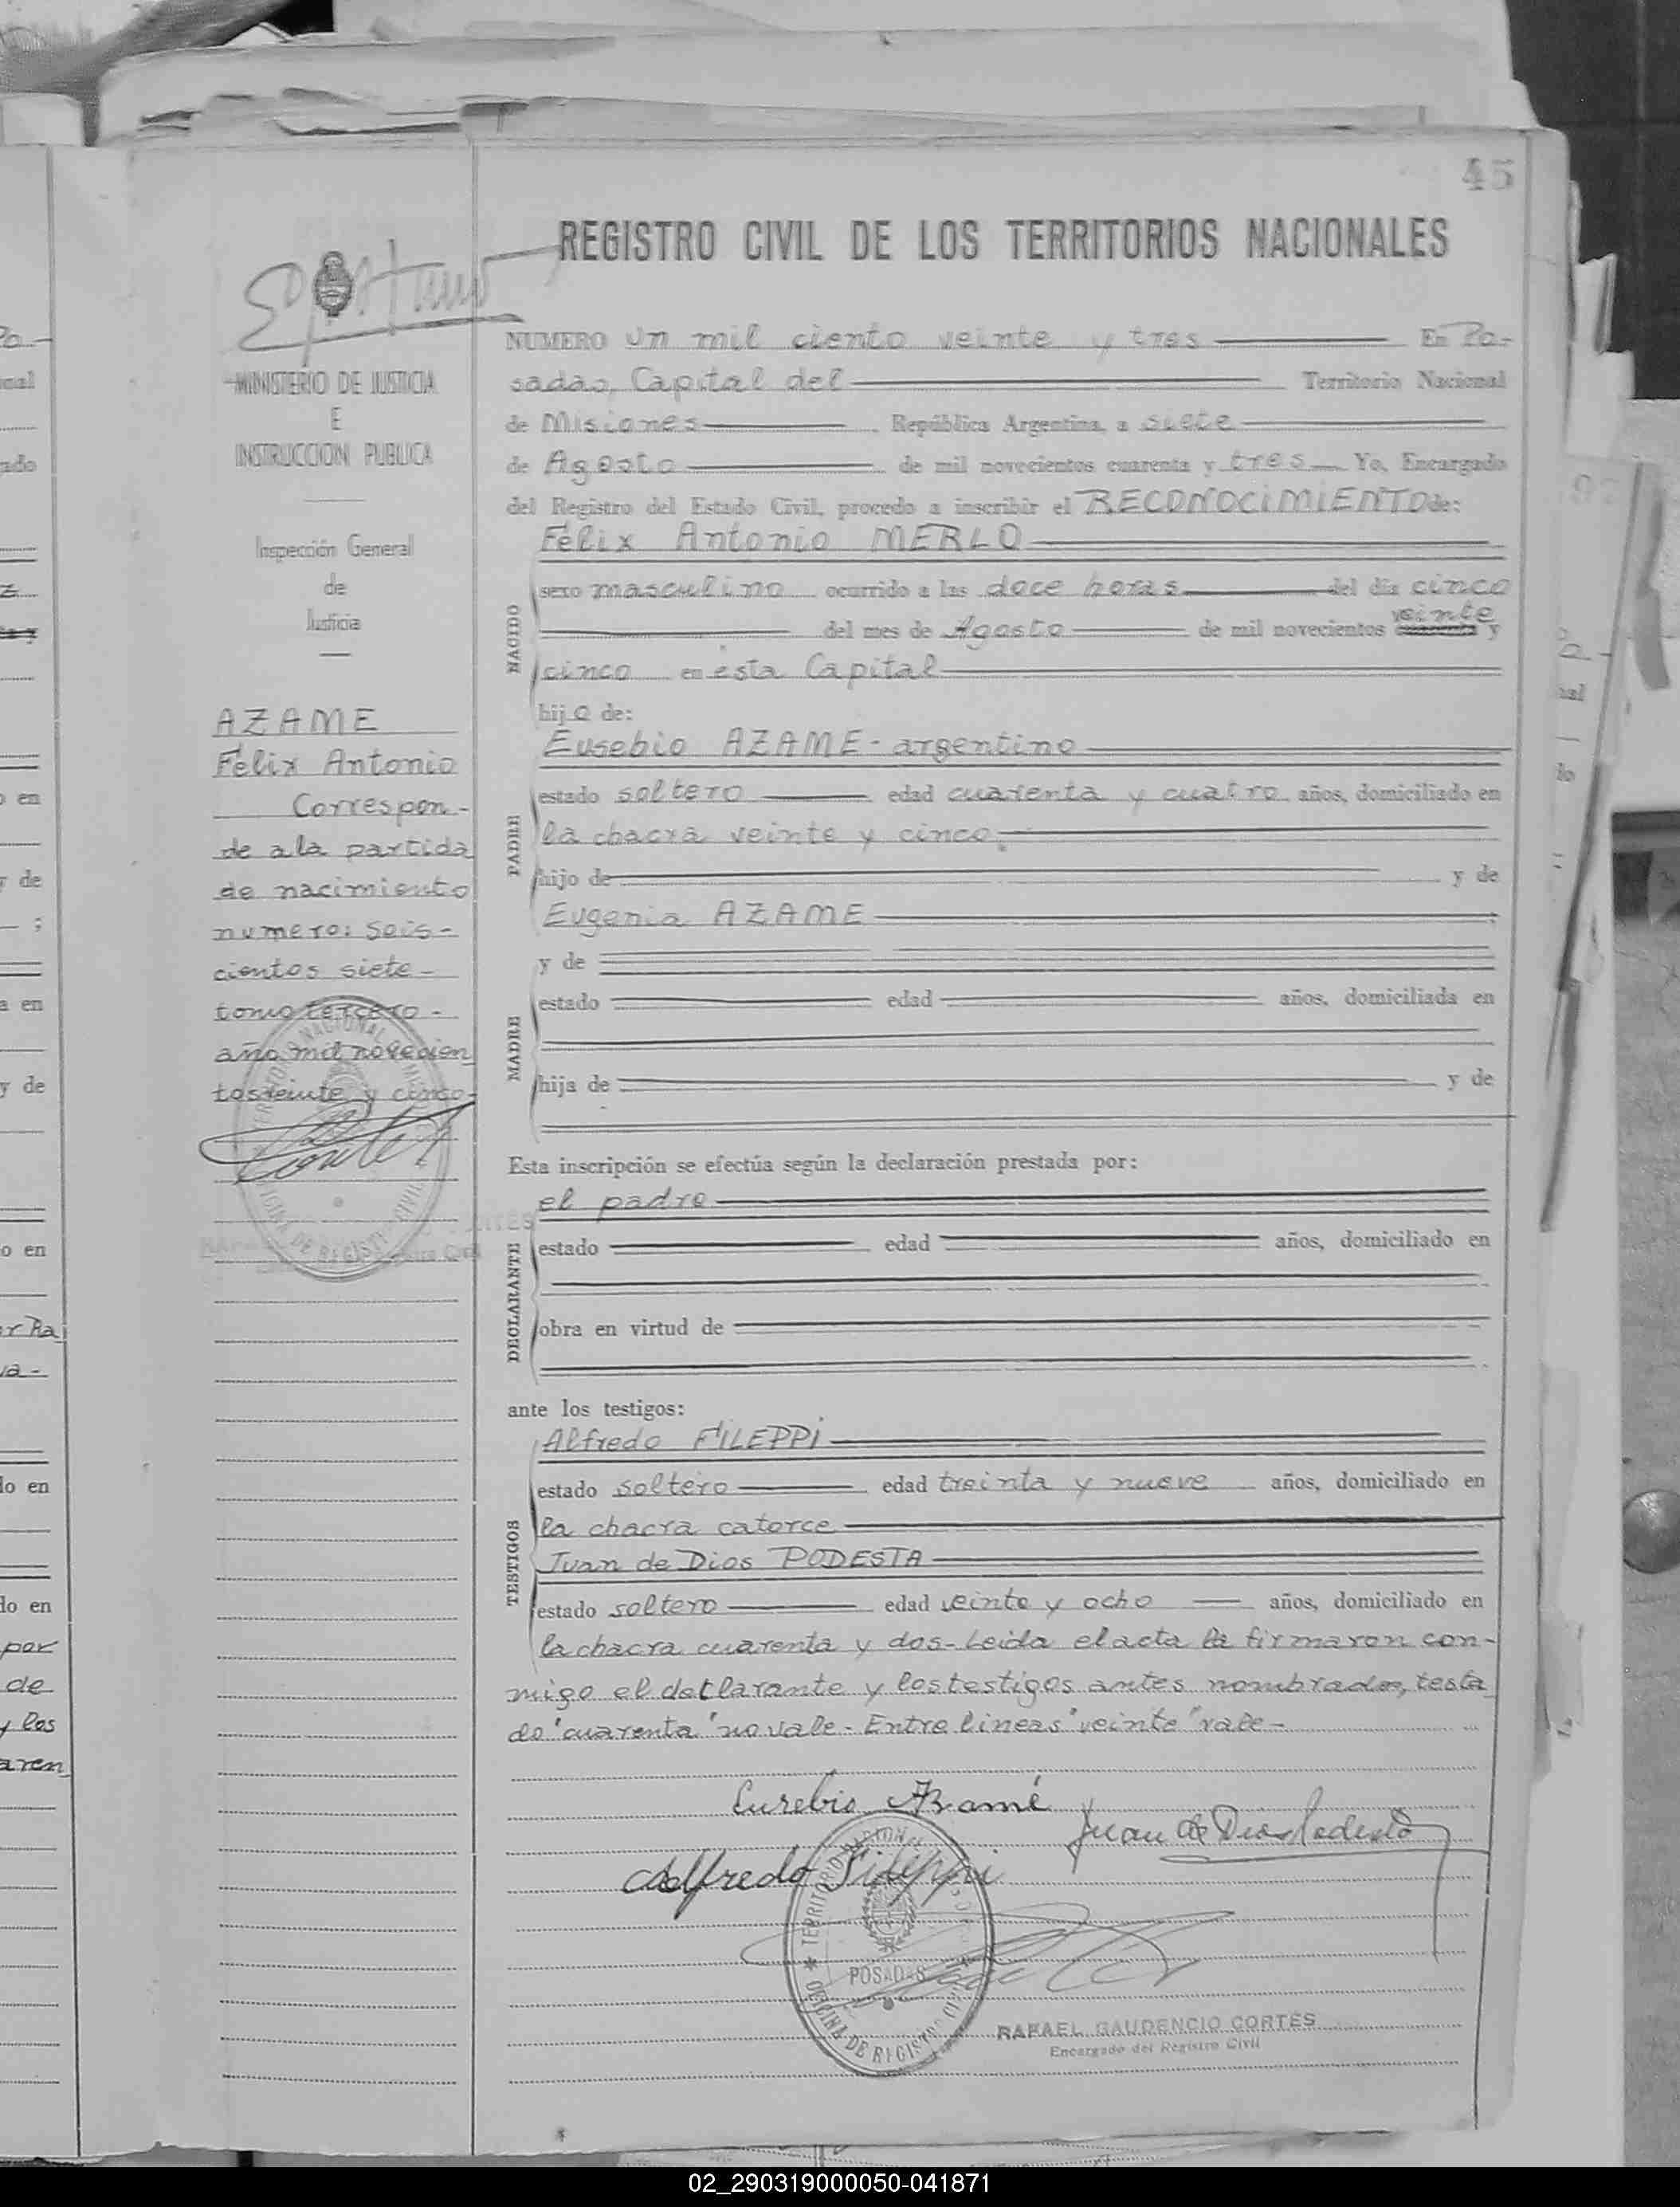 45
REGISTRO CIVIL DE LOS TERRITORIOS NACIONALES
MINISTERIO DE JUSTICIA
E
INSTRUCCION PUBLICA
Inspección General
de
Justicia
AZAME
Félix Antonio
Correspon-
de a la partida
de nacimiento
numero: seis-
cientos siete-
tomo tercero-
año mil novecien
tos veinte y cinco-
NUMERO un mil ciento veinte y tres En Po-
sadas, Capital del Territorio Nacional
de Misiones República Argentina, a siete
de Agosto de mil novecientos cuarenta y tres Yo, Encargado
del Registro del Estado Civil, procedo a inscribir el RECONOCIMIENTO de:
Félix Antonio MERLO
NACIDO
sexo masculino ocurrido a las doce horas del día cinco
veinte
del mes de Agosto de mil novecientos cuarenta y
cinco en esta Capital
hijo de:
Eusebio AZAME - argentino
PADRE
estado soltero edad cuarenta y cuatro años, domiciliado en
la chacra veinte y cinco.
hijo de y de
Eugenia AZAME ;
y de
MADRE
estado edad años, domiciliada en
hija de y de
Esta inscripción se efectúa según la declaración prestada por:
el padre
DECLARANTE
estado edad años, domiciliado en
obra en virtud de
ante los testigos:
Alfredo FILEPPI
TESTIGOS
estado soltero edad treinta y nueve años, domiciliado en
la chacra catorce
Juan de Dios PODESTA
estado soltero edad veinte y ocho años, domiciliado en
la chacra cuarenta y dos- Leida el acta la firmaron con-
migo el declarante y los testigos antes nombrados, testa
do "cuarenta" no vale - Entre lineas "veinte" vale -
Eusebio Azamé
Juan de Dios Podestá
Alfredo Fileppi
TERRITORIO NACIONAL
POSADAS
OFICINA DE REGISTRO CIVIL
RAFAEL GAUDENCIO CORTÉS
Encargado del Registro Civil
02_290319000050-041871